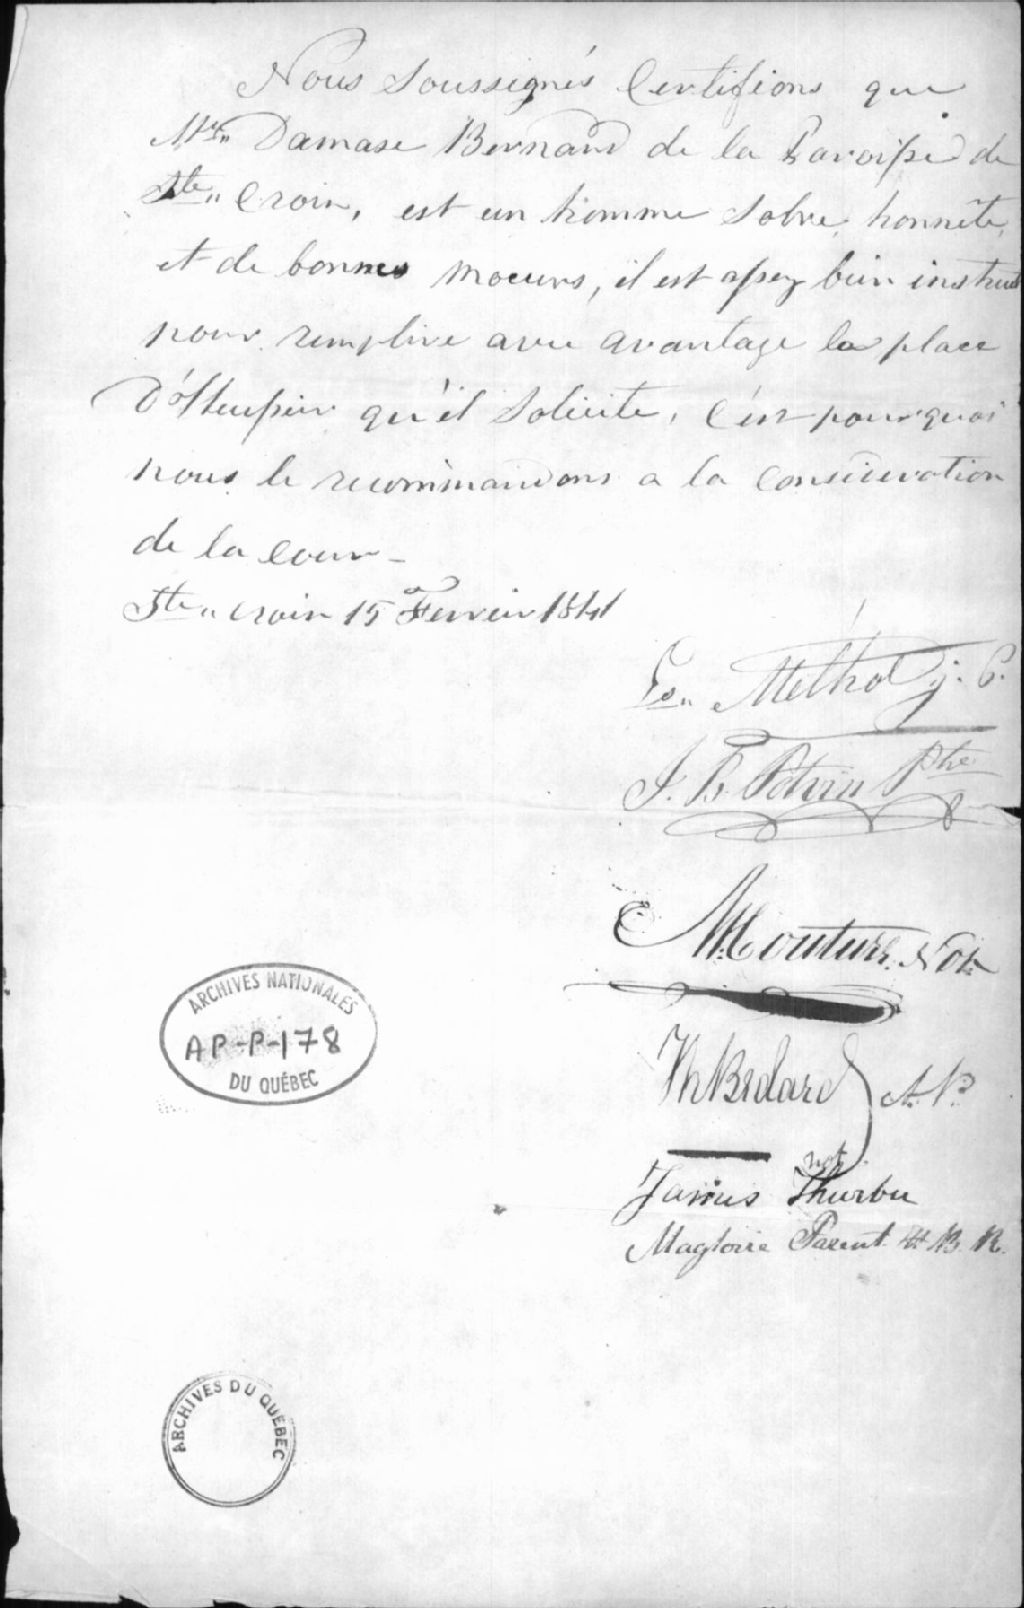 Nous Soussignés Certifions que
Mr. Damase Bernard de la Paroisse de
Ste. Croix, est un homme Sobre, honnête,
et de bonnes moeurs, il est assez bien instruit
pour remplire avec avantage la place
D'Huissier qu'il Solicite, C'est pourquoi
nous le recommandons a la Consideration
de la Cour -
Ste. Croix 15 Fevrier 1841
Methot j. P.
J. B. Potvin Ptre
Couture Not
Th Bedard N.P.
not
James Thurber
Magloire Parent H B. R.
ARCHIVES NATIONALES
AP-P-178
DU QUÉBEC
ARCHIVES DU QUEBEC